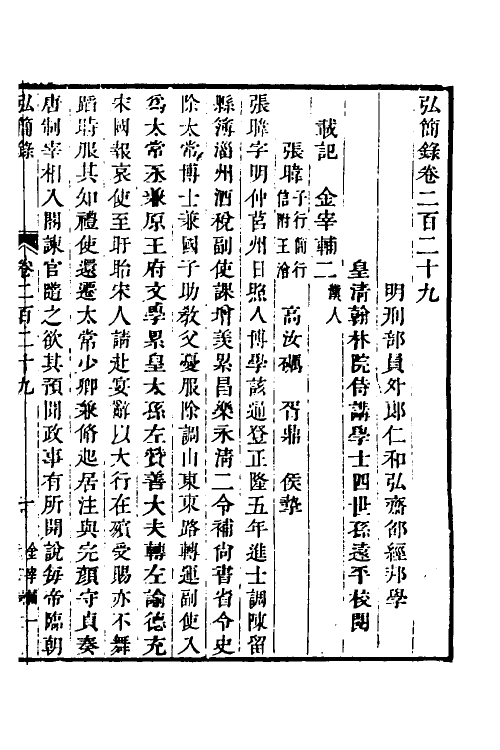 弘簡錄卷二百二十九
明刑部員外郎仁和弘齋邵經邦學
皇淸翰林院侍講學士四世孫遠平校閱
載記 金宰輔二 漢人
張暐 子行簡 行信 附王澮 高汝礪 胥鼎 侯摯
張暐字明仲莒州日照人博學該通登正隆五年進士調陳留
縣簿淄州酒稅副使課增羨累昌樂永清二令補尚書省令史
除太常博士兼國子助敎父憂服除調山東東路轉運副使入
爲太常丞兼原王府文學累皇太孫左贊善大夫轉左諭德充
宋國報哀使至盱眙宋人請赴宴辭以大行在殯受賜亦不舞
蹈時服其知禮使還遷太常少卿兼脩起居注與完顏守貞奏
唐制宰相入閣諫官隨之欲其預聞政事有所開說每帝臨朝
弘簡錄 卷二百二十九 金宰輔 一